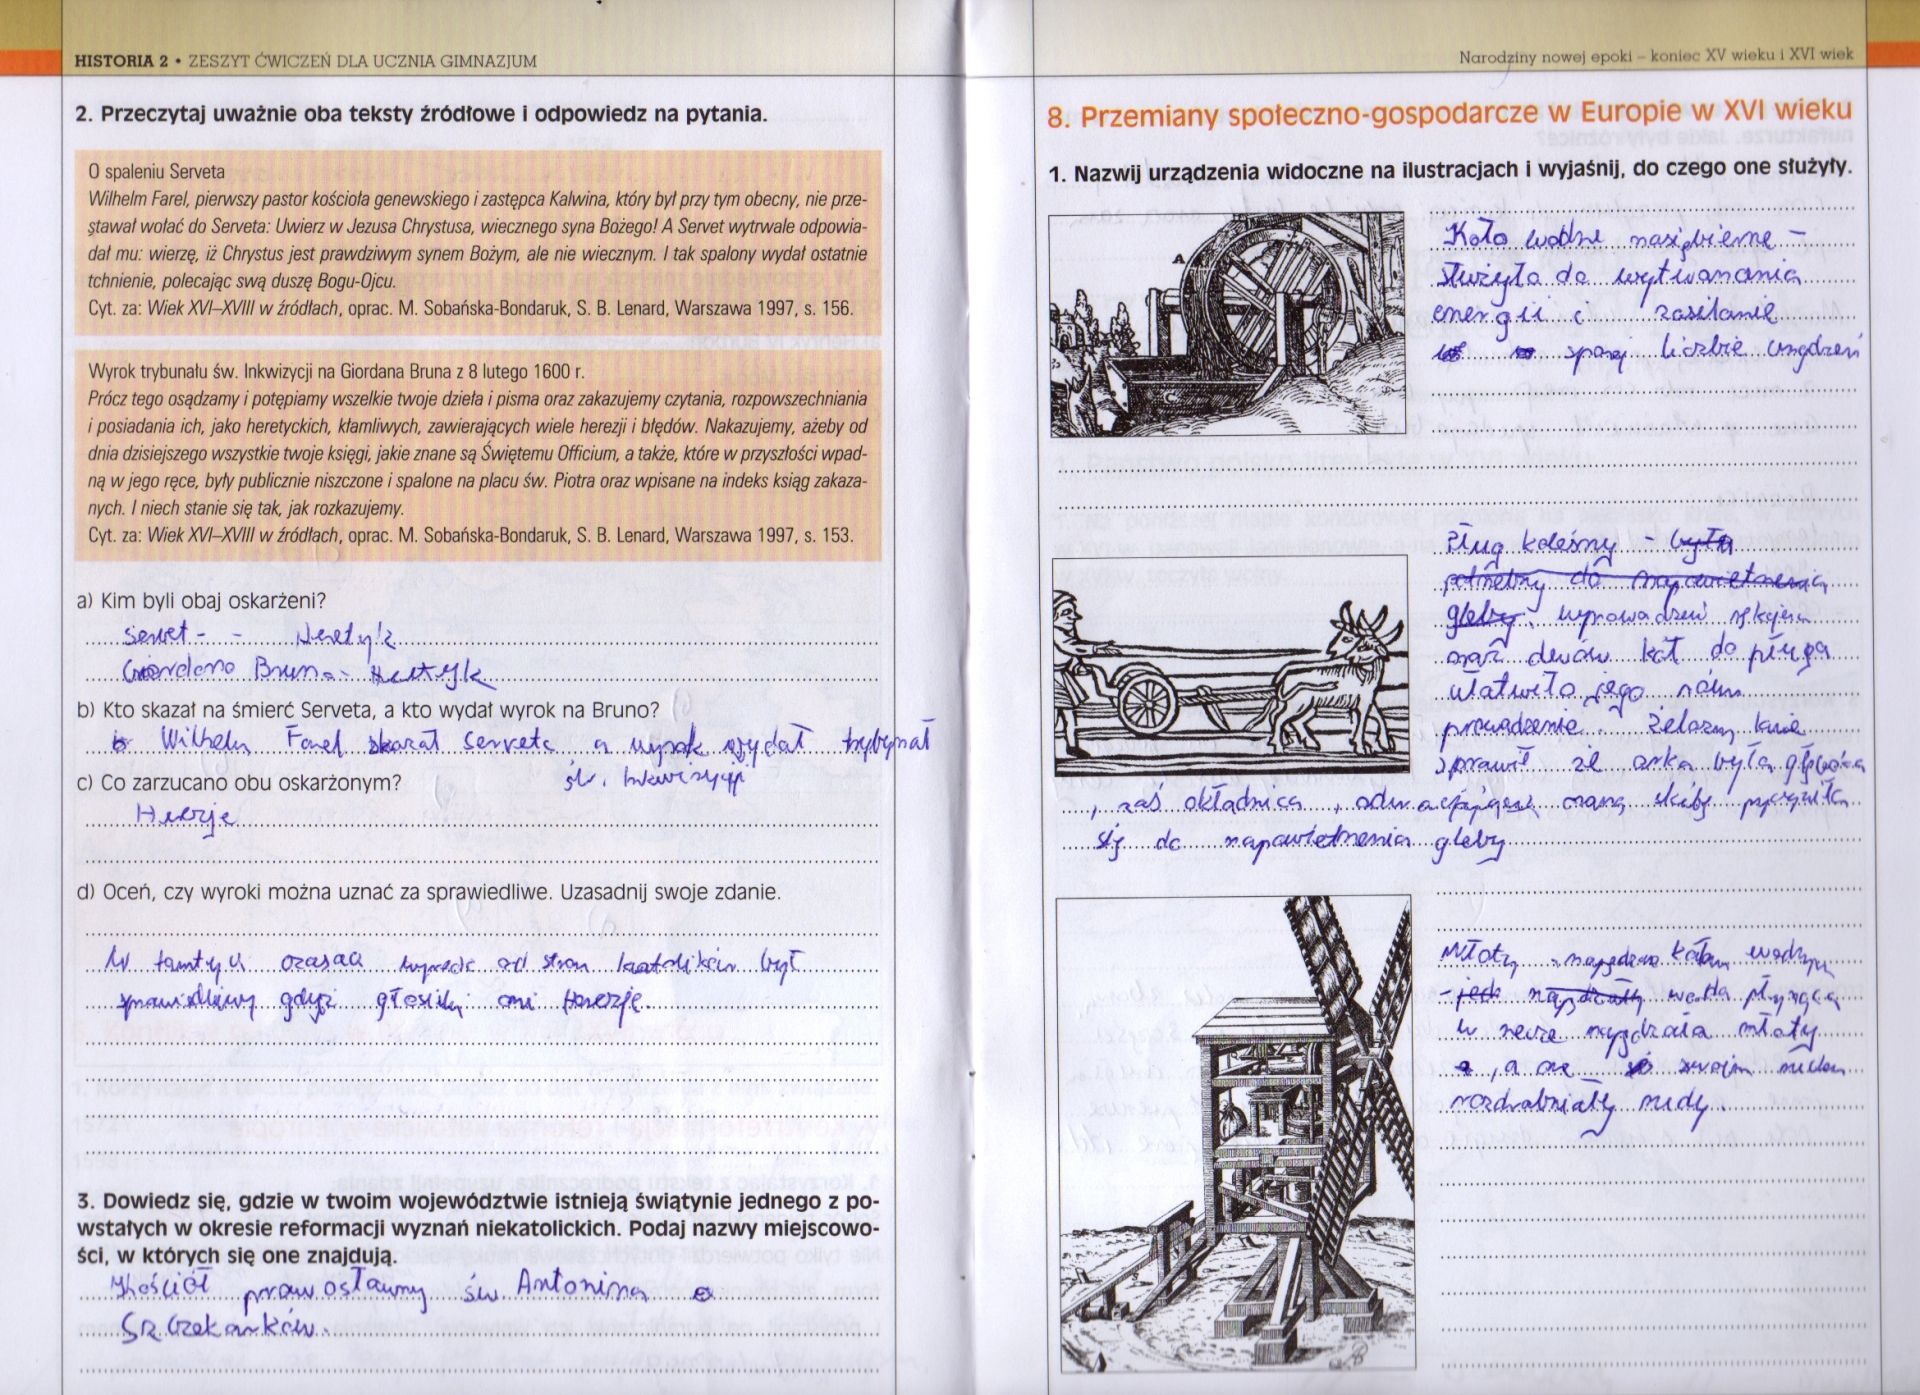 HISTORIA 2 • ZESZYT ĆWICZEŃ DLA UCZNIA GIMNAZJUM
2. Przeczytaj uważnie oba teksty źródłowe i odpowiedz na pytania.
O spaleniu Serveta
Wilhelm Farel, pierwszy pastor kościoła genewskiego i zastępca Kalwina, który był przy tym obecny, nie prze-
stawał wołać do Serveta: Uwierz w Jezusa Chrystusa, wiecznego syna Bożego! A Servet wytrwale odpowia-
dał mu: wierzę, iż Chrystus jest prawdziwym synem Bożym, ale nie wiecznym. I tak spalony wydał ostatnie
tchnienie, polecając swą duszę Bogu-Ojcu.
Cyt. za: Wiek XVI–XVIII w źródłach, oprac. M. Sobańska-Bondaruk, S. B. Lenard, Warszawa 1997, s. 156.
Wyrok trybunału św. Inkwizycji na Giordana Bruna z 8 lutego 1600 r.
Prócz tego osądzamy i potępiamy wszelkie twoje dzieła i pisma oraz zakazujemy czytania, rozpowszechniania
i posiadania ich, jako heretyckich, kłamliwych, zawierających wiele herezji i błędów. Nakazujemy, ażeby od
dnia dzisiejszego wszystkie twoje księgi, jakie znane są Świętemu Officium, a także, które w przyszłości wpad-
ną w jego ręce, były publicznie niszczone i spalone na placu św. Piotra oraz wpisane na indeks ksiąg zakaza-
nych. I niech stanie się tak, jak rozkazujemy.
Cyt. za: Wiek XVI–XVIII w źródłach, oprac. M. Sobańska-Bondaruk, S. B. Lenard, Warszawa 1997, s. 153.
a) Kim byli obaj oskarżeni?
Servet - - Heretyk
Giordano Bruno - Heretyk
b) Kto skazał na śmierć Serveta, a kto wydał wyrok na Bruno?
Wilhelm Farel skazał Serveta a wyrok wydał trybynał
św. Inkwizycji
c) Co zarzucano obu oskarżonym?
Herezje
d) Oceń, czy wyroki można uznać za sprawiedliwe. Uzasadnij swoje zdanie.
W tamtych czasach wyrok od stron katolików był
sprawiedliwy gdyż głosili oni herezje.
3. Dowiedz się, gdzie w twoim województwie istnieją świątynie jednego z po-
wstałych w okresie reformacji wyznań niekatolickich. Podaj nazwy miejscowo-
ści, w których się one znajdują.
Kościół prawosławny św. Antonina
Szczekarków.
Narodziny nowej epoki – koniec XV wieku i XVI wiek
8. Przemiany społeczno-gospodarcze w Europie w XVI wieku
1. Nazwij urządzenia widoczne na ilustracjach i wyjaśnij, do czego one służyły.
A
Koło wodne nasiębierne -
służyło do wytwarzania
energii i zasilanie
sporej liczbie urządzeń
Pług koleśny - była
potrzebny do napowietrzenia
gleby. wprowadzeni
oraz dwóch kół do pługa
ułatwiło jego
prowadzenie. Żelazny
sprawił że orka była głęboka
, zaś okładnica, odwracająca oraną skibę przyczyniła
się do napowietrzenia gleby
Młoty - napędzane kołem wodnym
- jeck napędzały woda płynąca
w rzece napędzała młoty
, a one swoim
rozdrabniały rudy.